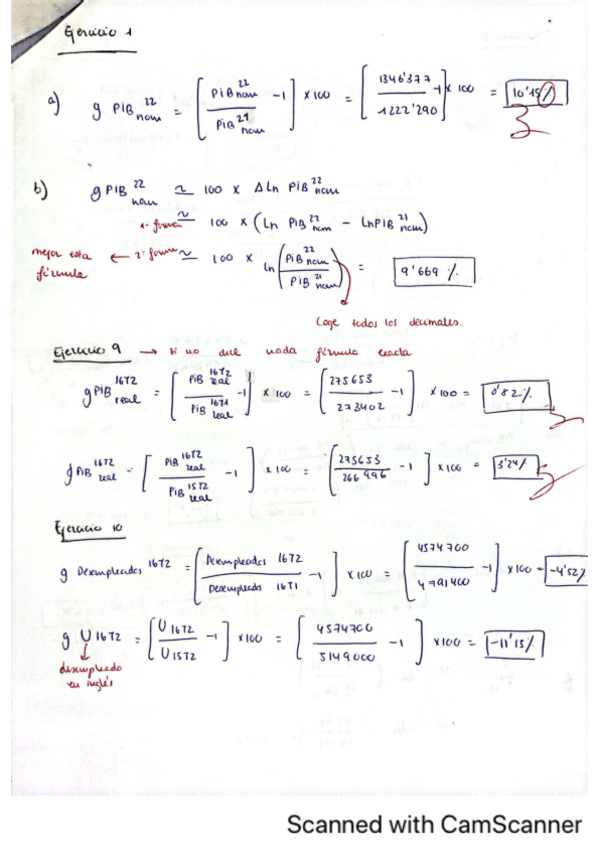 Ejercicio 1
a) g PIB nom 22 = [ PIB nom 22 / PIB nom 21 - 1 ] x 100 = [ 1346'377 / 1222'290 - 1 ] x 100 = 10'15%
b) g PIB nom 22 ≃ 100 x Δ Ln PIB nom 22
1ª forma ≃ 100 x ( Ln PIB nom 22 - Ln PIB nom 21 )
mejor esta fórmula ← 2ª forma ≃ 100 x Ln ( PIB nom 22 / PIB nom 21 ) = 9'669 %
Coge todos los decimales.
Ejercicio 9 → si no dice nada fórmula exacta
g PIB real 16T2 = [ PIB real 16T2 / PIB real 16T1 - 1 ] x 100 = [ 275653 / 273402 - 1 ] x 100 = 0'82%
g PIB real 16T2 = [ PIB real 16T2 / PIB real 15T2 - 1 ] x 100 = [ 275653 / 266996 - 1 ] x 100 = 3'24%
Ejercicio 10
g Desempleados 16T2 = [ Desempleados 16T2 / Desempleado 16T1 - 1 ] x 100 = [ 4574700 / 4791400 - 1 ] x 100 = -4'52%
g U 16T2 = [ U 16T2 / U 15T2 - 1 ] x 100 = [ 4574700 / 5149000 - 1 ] x 100 = -11'15%
desempleado
en inglés
Scanned with CamScanner